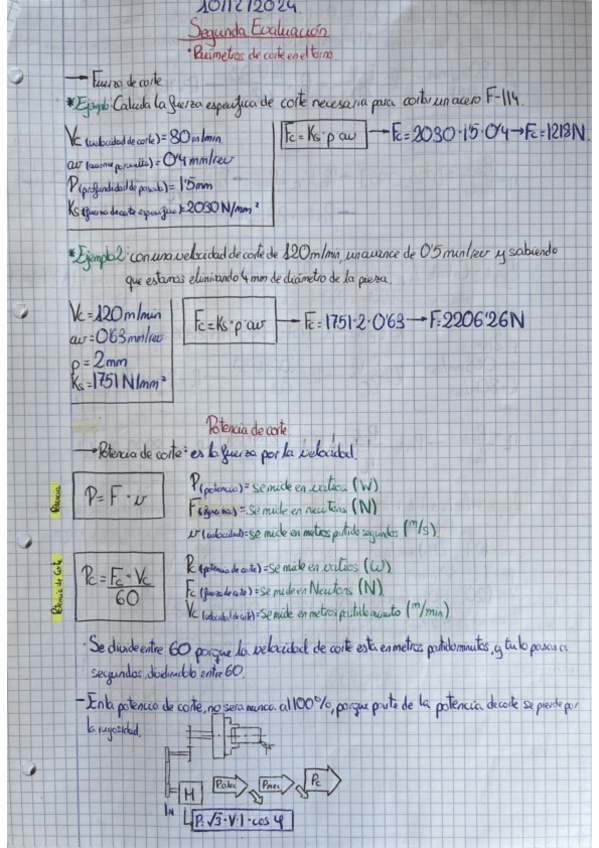 10/12/2024
Segunda Evaluación
· Parámetros de corte en el torno
→ Fuerza de corte
* Ejemplo: Calcula la fuerza específica de corte necesaria para cortar un acero F-114.
Vc (velocidad de corte) = 80 m/min
av (avance por vuelta) = 0'4 mm/rev
P (profundidad de pasada) = 1'5mm
Ks (fuerza de corte específica) = 2030 N/mm²
Fc = Ks · p · av → Fc = 2030 · 1'5 · 0'4 → Fc = 1218 N.
* Ejemplo 2: con una velocidad de corte de 120 m/min, un avance de 0'5 mm/rev y sabiendo
que estamos eliminando 4 mm de diámetro de la pieza.
Vc = 120 m/min
av = 0'63 mm/rev
p = 2mm
Ks = 1751 N/mm²
Fc = Ks · p · av → Fc = 1751 · 2 · 0'63 → F = 2206'26 N
Potencia de corte
→ Potencia de corte: es la fuerza por la velocidad.
Potencia
P = F · v
P (potencia) = se mide en vatios (W)
F (fuerza) = se mide en newtons (N)
v (velocidad) = se mide en metros partido segundos (m/s)
Potencia de Corte
Pc = Fc · Vc / 60
Pc (potencia de corte) = se mide en vatios (W)
Fc (fuerza de corte) = se mide en Newtons (N)
Vc (velocidad de corte) = se mide en metros partido minuto (m/min)
· Se divide entre 60 porque la velocidad de corte esta en metros partido minutos, y tu lo pasas a
segundos dividiendolo entre 60.
- En la potencia de corte, no sera nunca al 100%, porque parte de la potencia de corte se pierde por
la rugosidad.
M
Pelec
Pmec
Pc
P = √3 · V · I · cos φ